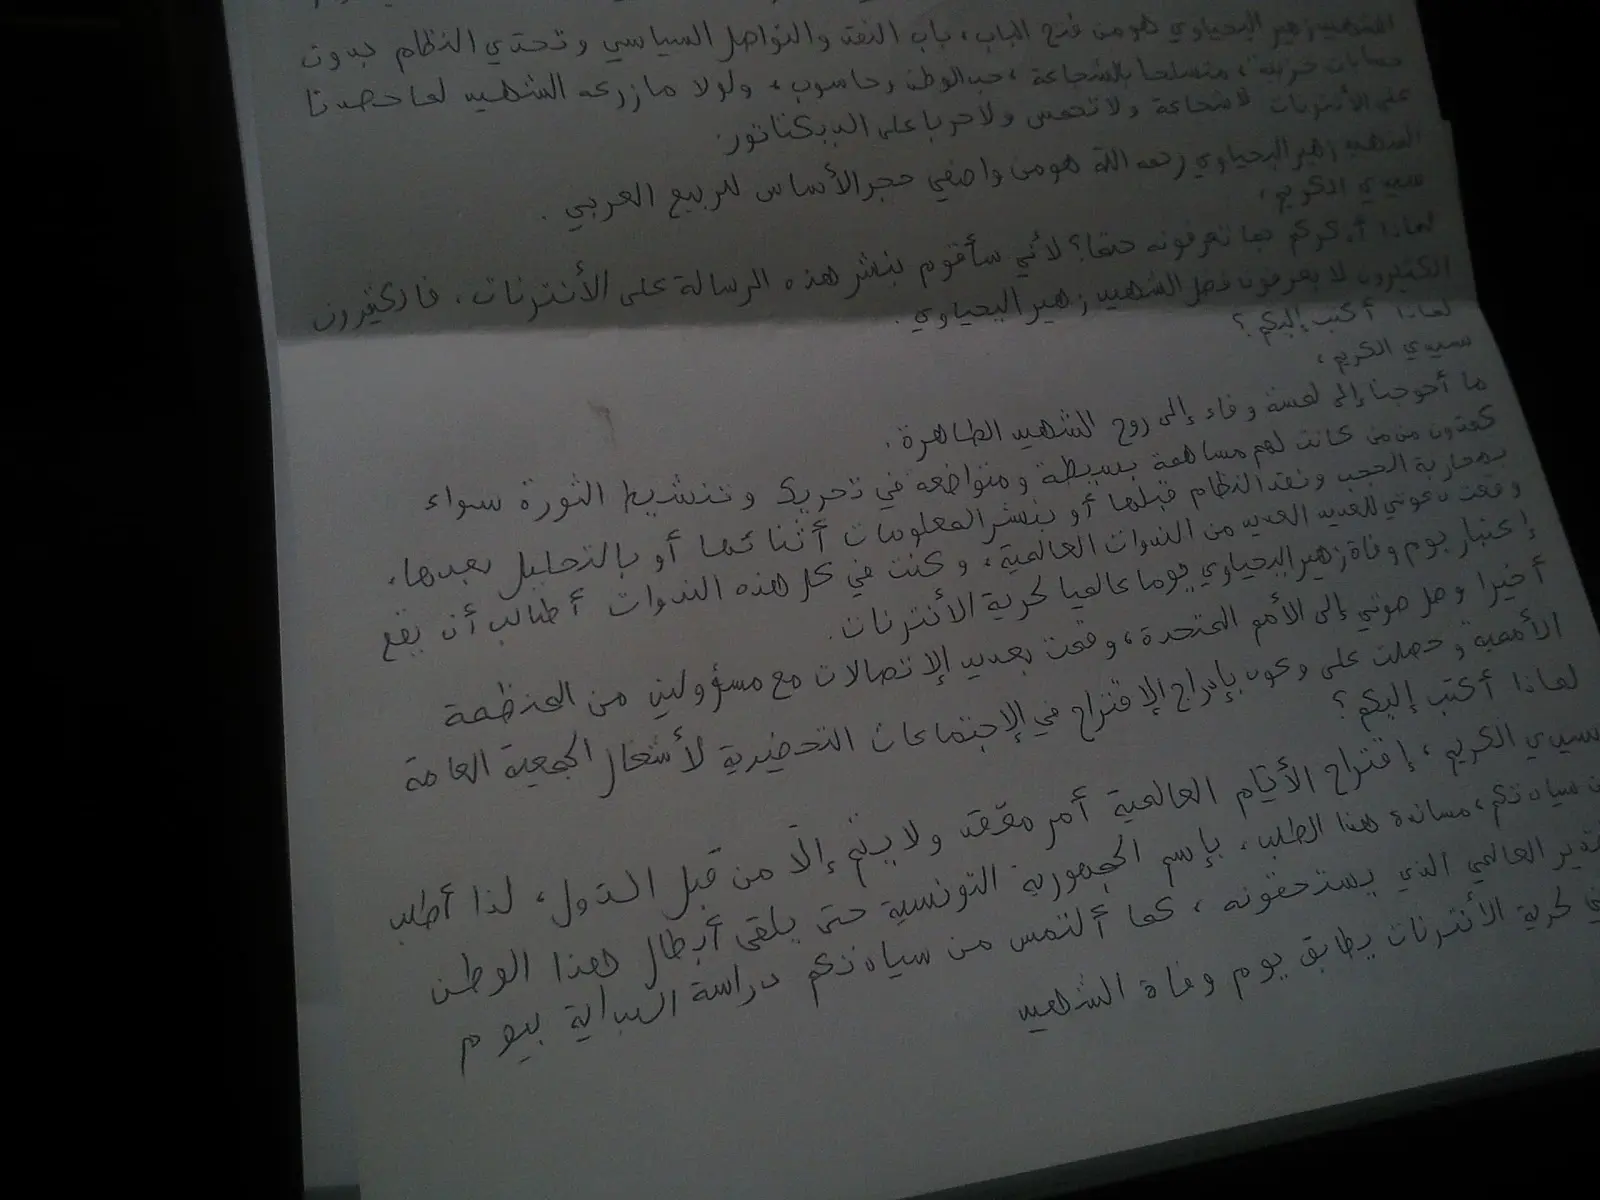 الشهيد زهير اليحياوي هو من فتح الباب، باب النقد والتواصل السياسي وتحدي النظام بدون
حسابات حزبية، متسلحا بالشجاعة، حب الوطن وحاسوب، ولولا ما زرعه الشهيد لما حصدنا
على الأنترنات لا شجاعة ولا تحمس ولا حربا على الديكتاتور.
الشهيد زهير اليحياوي رحمه الله هو من واضعي حجر الأساس للربيع العربي.
سيدي الكريم،
لماذا أذكركم بما تعرفونه حقا؟ لأني سأقوم بنشر هذه الرسالة على الأنترنات، فالكثيرون
الكثيرون لا يعرفون فضل الشهيد زهير اليحياوي.
لماذا أكتب إليكم؟
سيدي الكريم،
ما أحوجنا إلى لمسة وفاء إلى روح الشهيد الطاهرة.
كمدون من من كانت لهم مساهمة بسيطة ومتواضعة في تحريك وتنشيط الثورة سواء
بمحاربة الحجب ونقد النظام قبلها أو بنشر المعلومات أثنائها أو بالتحليل بعدها،
وقعت دعوتي للعديد العديد من الندوات العالمية، وكنت في كل هذه الندوات أطالب أن يقع
إعتبار يوم وفاة زهير اليحياوي يوما عالميا لحرية الأنترنات.
أخيرا وصل صوتي إلى الأمم المتحدة، وقمت بعديد الإتصالات مع مسؤولين من المنظمة
الأممية وحصلت على وعود بإدراج الإقتراح في الإجتماعات التحضيرية لأشغال الجمعية العامة
لماذا أكتب إليكم؟
سيدي الكريم، إقتراح الأيام العالمية أمر معقد ولا يتم إلا من قبل الدول، لذا أطلب
من سيادتكم، مساندة هذا الطلب، بإسم الجمهورية التونسية حتى يلقى أبطال هذا الوطن
العالمي الذي يستحقونه، كما ألتمس من سيادتكم دراسة البداية بيوم
لحرية الأنترنات يطابق يوم وفاة الشهيد